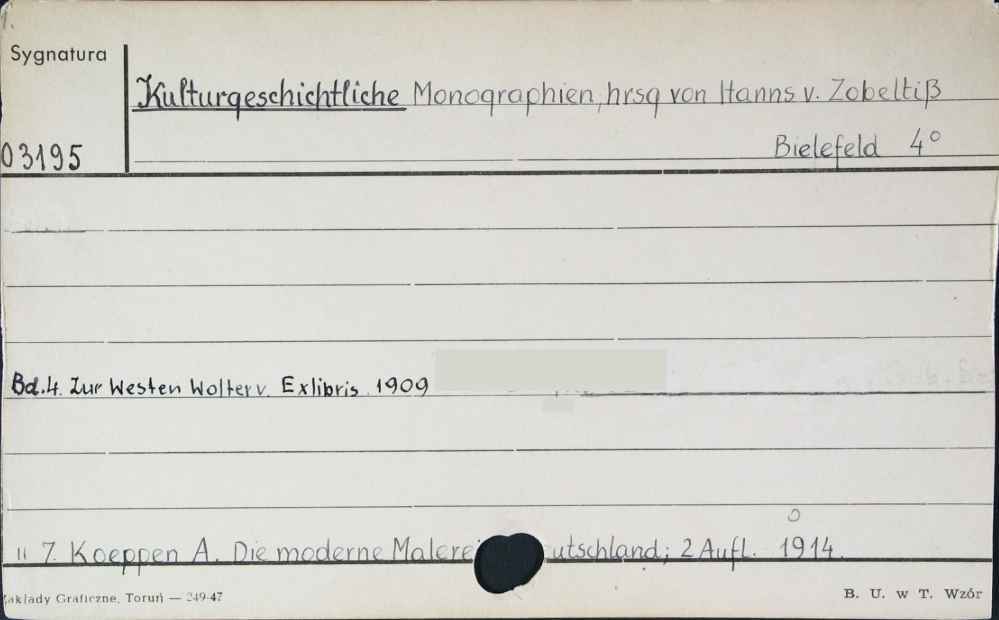 1.
Sygnatura
Kulturgeschichtliche Monographien, hrsg von Hanns v. Zobeltiß
Bielefeld 4°
03195
Bd.4. Zur Westen Wolter v. Exlibris. 1909
" 7. Koeppen A. Die moderne Malere utschland; 2 Aufl. 1914.
akłady Graficzne, Toruń — 249-47
B. U. w T. Wzór